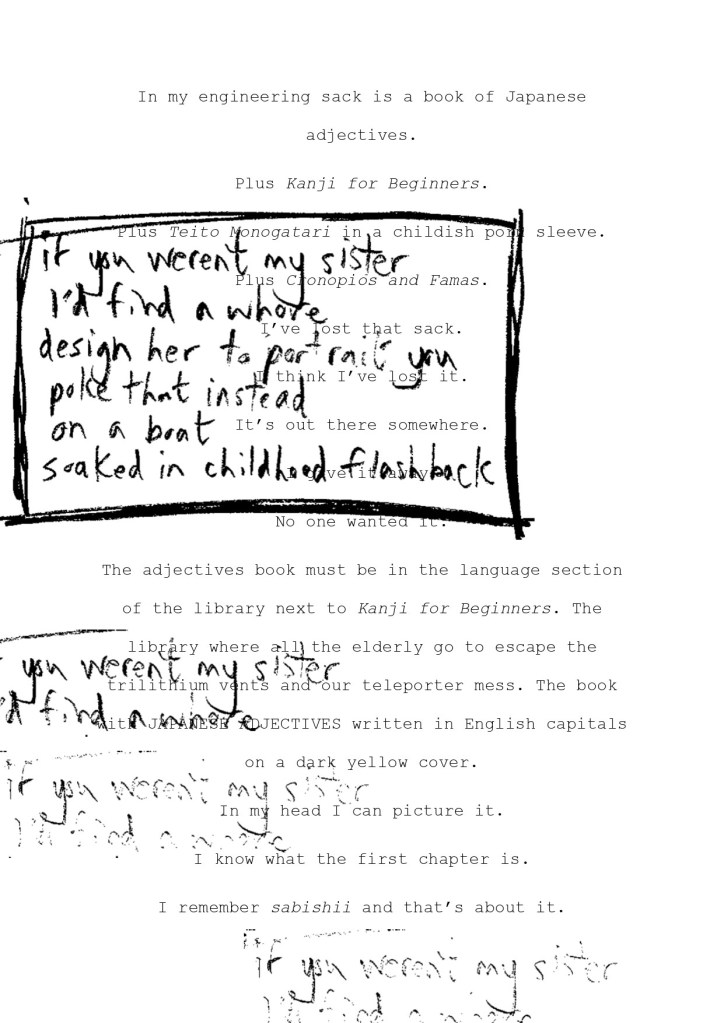 In my engineering sack is a book of Japanese
adjectives.
Plus Kanji for Beginners.
Plus Teito Monogatari in a childish porn sleeve.
Plus Cronopios and Famas.
I've lost that sack.
I think I've lost it.
It's out there somewhere.
I gave it away.
No one wanted it.
if you werent my sister
I'd find a whore
design her to portrait you
poke that instead
on a boat
soaked in childhood flashback
The adjectives book must be in the language section
of the library next to Kanji for Beginners. The
library where all the elderly go to escape the
trilithium vents and our teleporter mess. The book
with JAPANESE ADJECTIVES written in English capitals
on a dark yellow cover.
you weren't my sister
I'd find a whore
In my head I can picture it.
if you weren't my sister
I'd find a whore
I know what the first chapter is.
I remember sabishii and that's about it.
if you weren't my sister
I'd find a whore